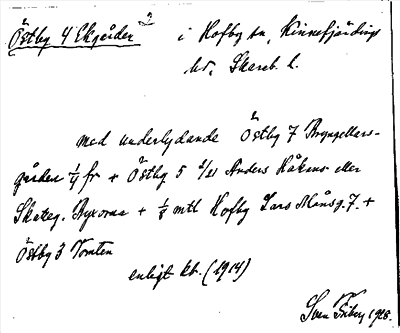 Östby 4 Ekgården i Hofby sn, Kinnefjärdings
hd, Skarab. l.
med underlydande Östby 7 Bryngellars-
gården 1/4 fr + Östby 5 2/21 Anders Håkans eller
Skatteg. + 1/8 mtl Hofby Lars Månsg. 7. +
Östby 3 Tomten
enligt kb. (1914)
Sven Friberg 1928.